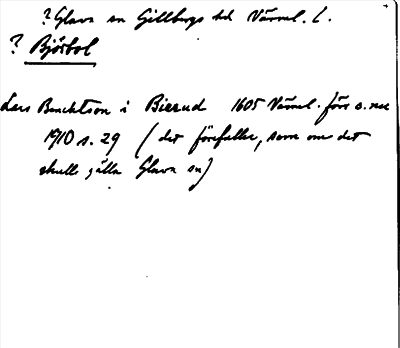 ? Glava sn Gillbergs hd Värml. l.
? Björbol
Lars Bencktson i Bierud 1605 Värml. förr o. nu
1910 s. 29 (det förefaller, som om det
skulle gälla Glava sn)